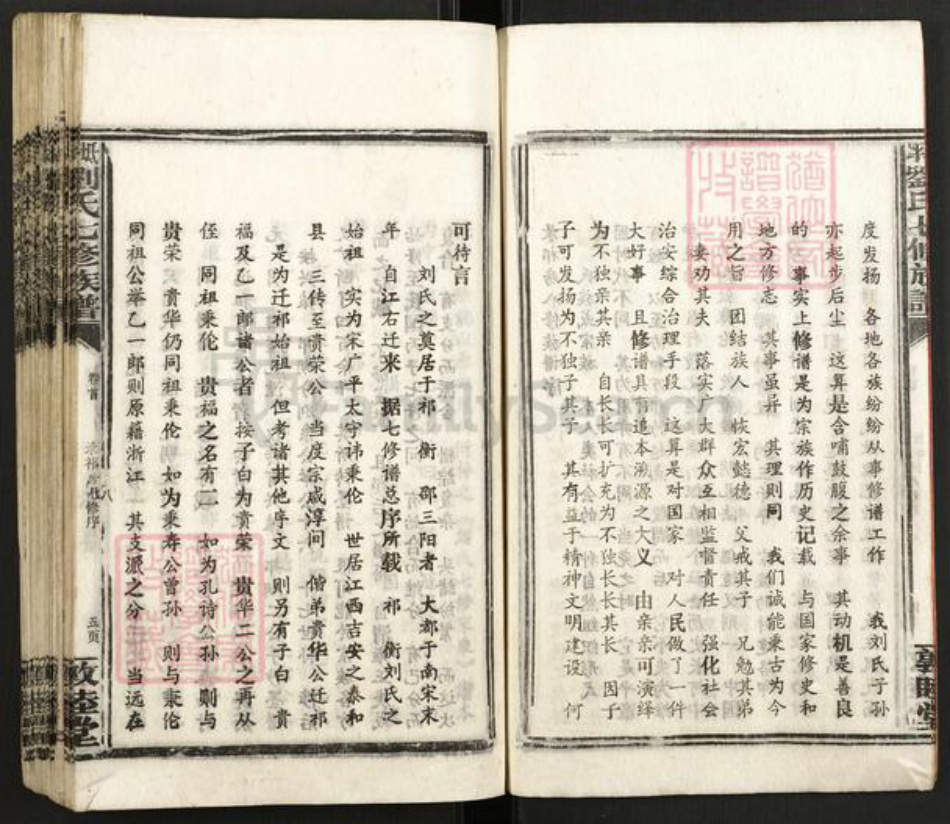 度发扬 各地各族纷纷从事修谱工作 我刘氏子孙
亦起步后尘 这算是含哺鼓腹之余事 其动机是善良
的 事实上修谱是为宗族作历史记载 与国家修史和
地方修志 其事虽异 其理则同 我们诚能秉古为今
用之旨 团结族人 恢宏懿德 父戒其子 兄勉其弟
妻劝其夫 落实广大群众互相监督责任 强化社会
治安综合治理手段 这算是对国家 对人民做了一件
大好事 且修谱具有追本溯源之大义 由亲亲可演绎
为不独亲其亲 自长长可扩充为不独长其长 因子
子可发扬为不独子其子 其有益于精神文明建设 何
可待言
刘氏之奠居于祁 衡 邵三阳者 大都于南宋末
年 自江右迁来 据七修谱总序所载 祁 衡刘氏之
始祖 实为宋广平太守讳秉伦 世居江西吉安之泰和
县 三传至贵荣公 当度宗咸淳间 偕弟贵华公迁祁
是为迁祁始祖 但考诸其他序文 则另有子白 贵
福及乙一郎诸公者 按子白为贵荣 贵华二公之再从
侄 同祖秉伦 贵福之名有二 如为孔诗公孙 则与
贵荣 贵华仍同祖秉伦 如为秉寿公曾孙 则与秉伦
同祖公举乙一郎则原籍浙江 其支派之分 当远在
劉氏七修族譜
卷首
八修序
五页
敦睦堂